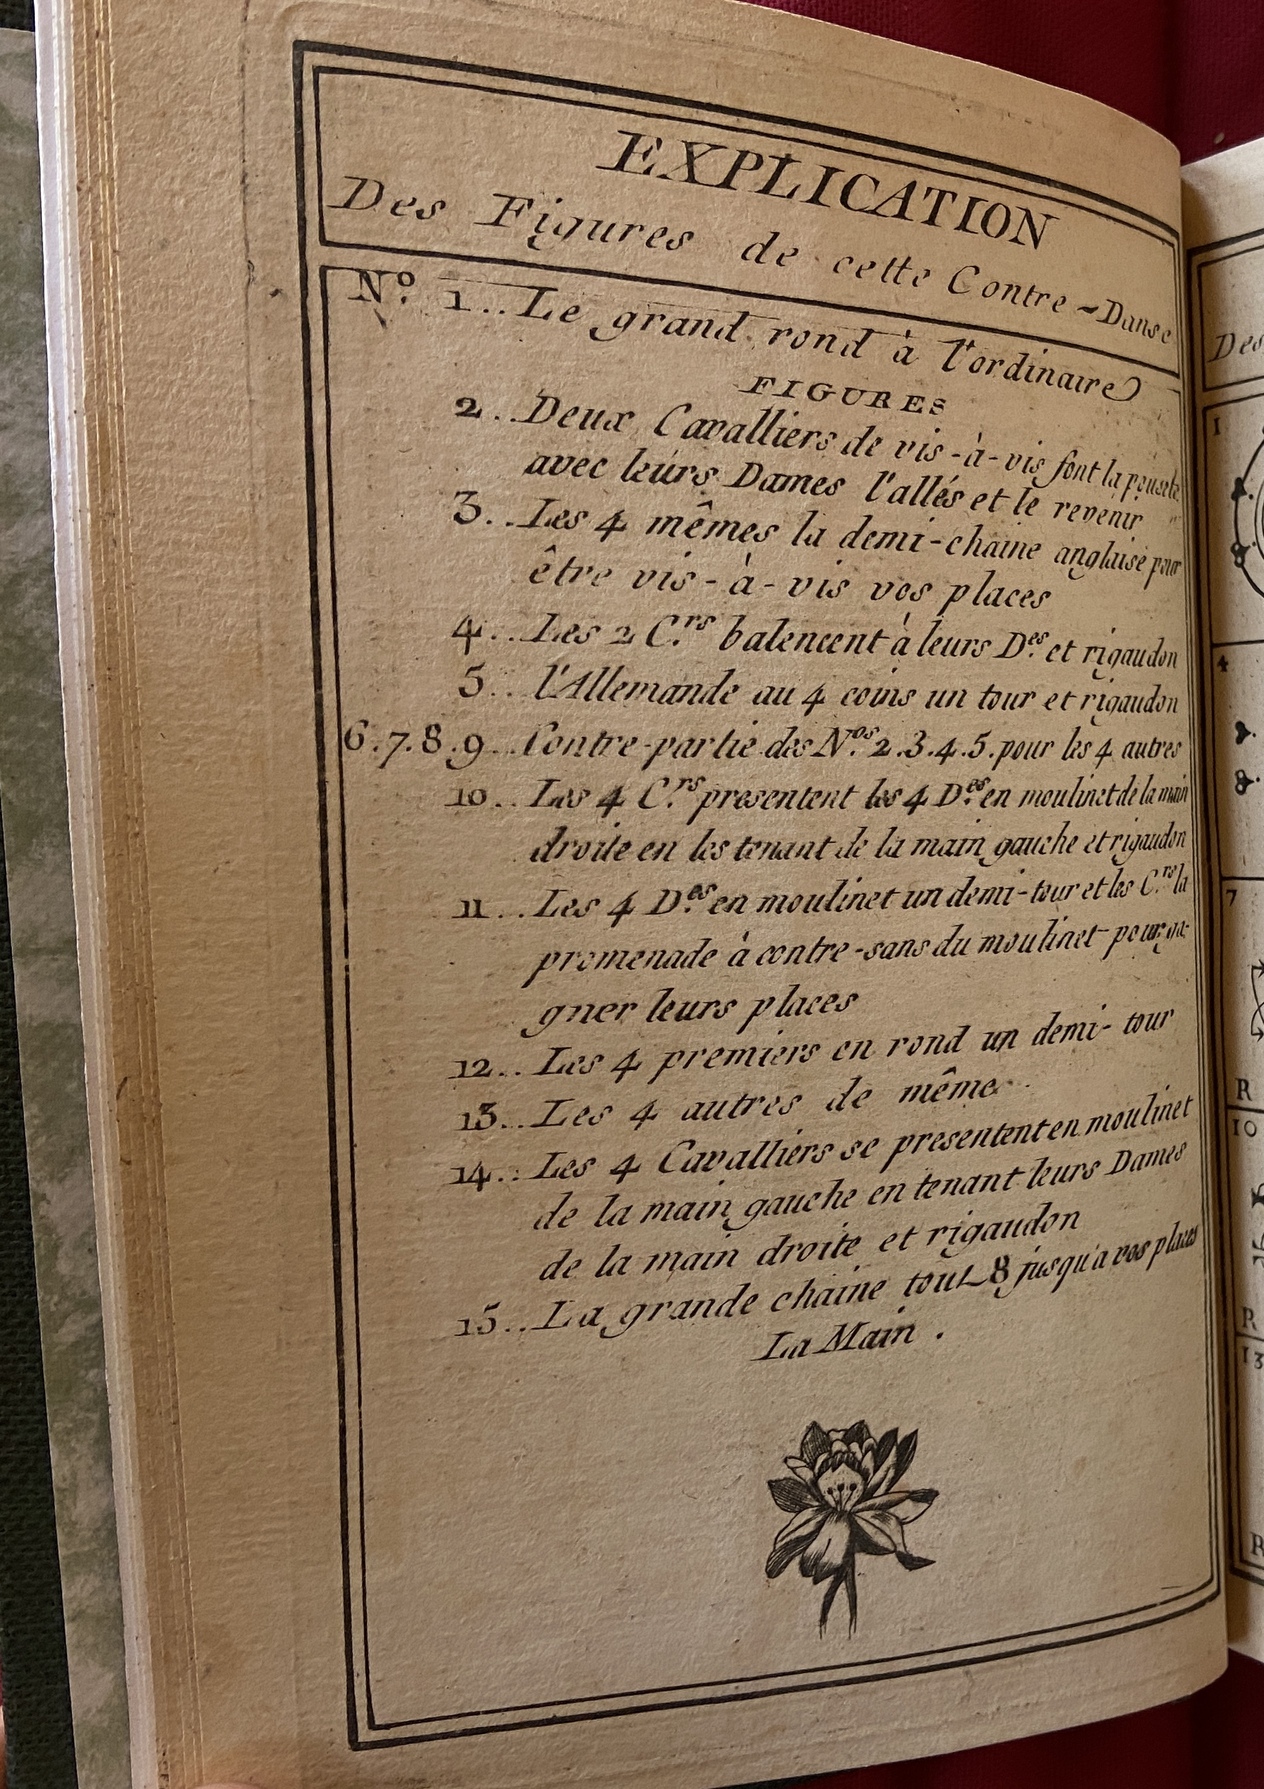 EXPLICATION
Des Figures de cette Contre-Danse
N.º 1.. Le grand rond à l'ordinaire
FIGURES
2.. Deux Cavalliers de vis-à-vis font la
avec leurs Dames l'allés et le revenir
3... Les 4 mêmes la demi-chaine anglaise pour
être vis-à-vis vos places
4... Les 2 C.rs balencent à leurs D.es et rigaudon
5... l'Allemande au 4 coins un tour et rigaudon
6.7.8.9... Contre-partie des N.os 2.3.4.5. pour les 4 autres
10... Les 4 C.rs presentent les 4 D.es en moulinet de la main
droite en les tenant de la main gauche et rigaudon
11... Les 4 D.es en moulinet un demi-tour et les C.rs la
promenade à contre-sans du moulinet pour ga-
gner leurs places
12... Les 4 premiers en rond un demi-tour
13... Les 4 autres de même
14... Les 4 Cavalliers se presentent en moulinet
de la main gauche en tenant leurs Dames
de la main droite et rigaudon
15... La grande chaine tout 8 jusqu'a vos places
La Main.
Des
1
4
7
R
10
R
13
R